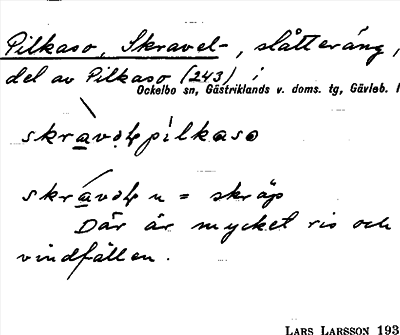 Pilkaso, Skravel-, slåtteräng,
del av Pilkaso (243) i
Ockelbo sn, Gästriklands v. doms. tg, Gävleb. l
skravəl̥pilkaso
skravəl̥ n = skräp
Där är mycket ris och
vindfällen.
LARS LARSSON 193